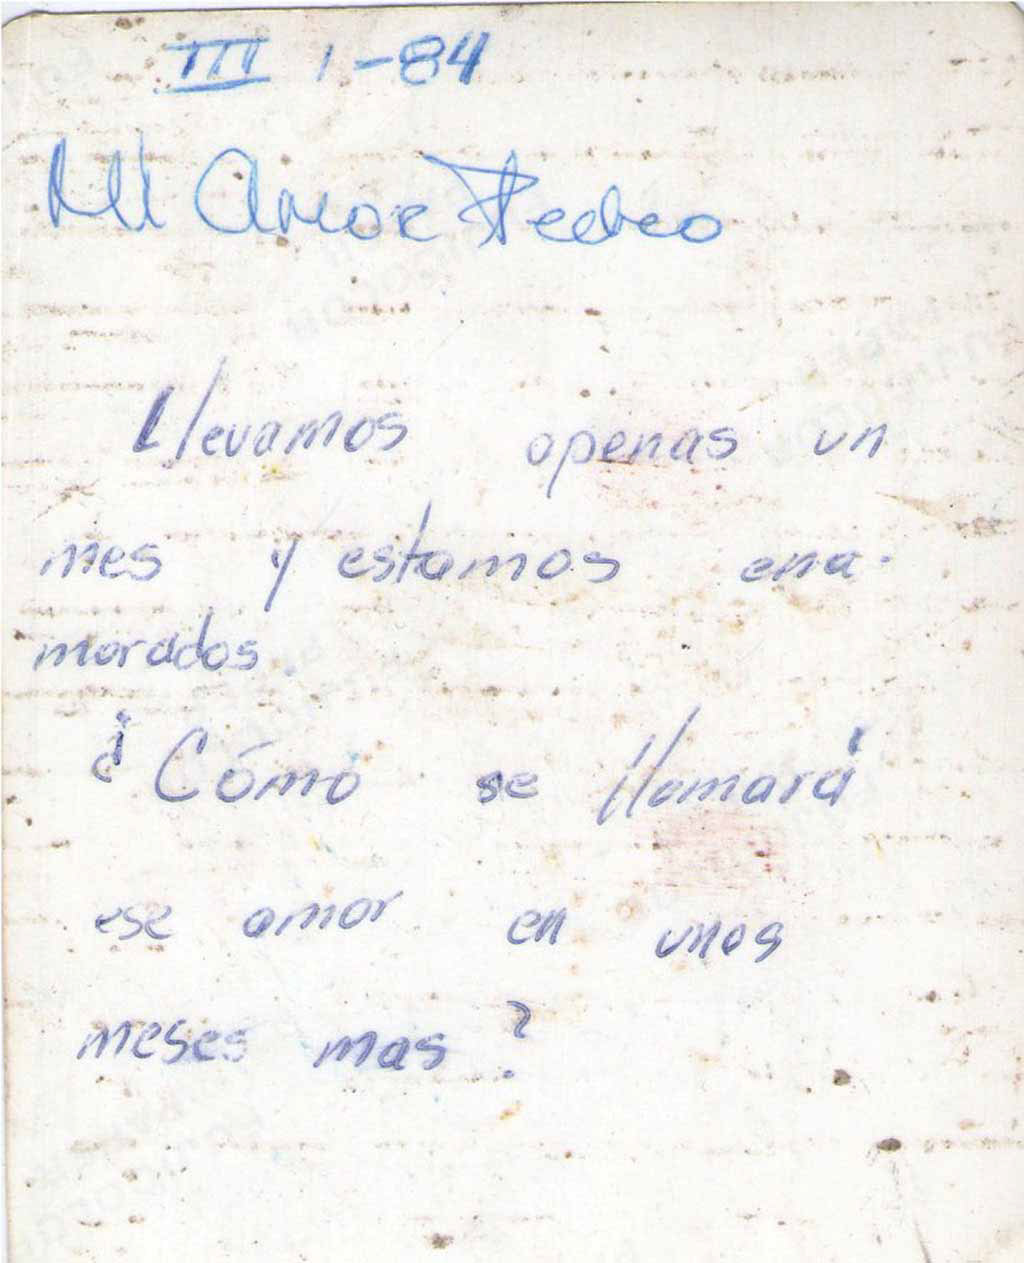 III 1-84
Mi Amor Pedro
Llevamos apenas un
mes y estamos ena-
morados.
¿Cómo se llamará
ese amor en unos
meses mas?